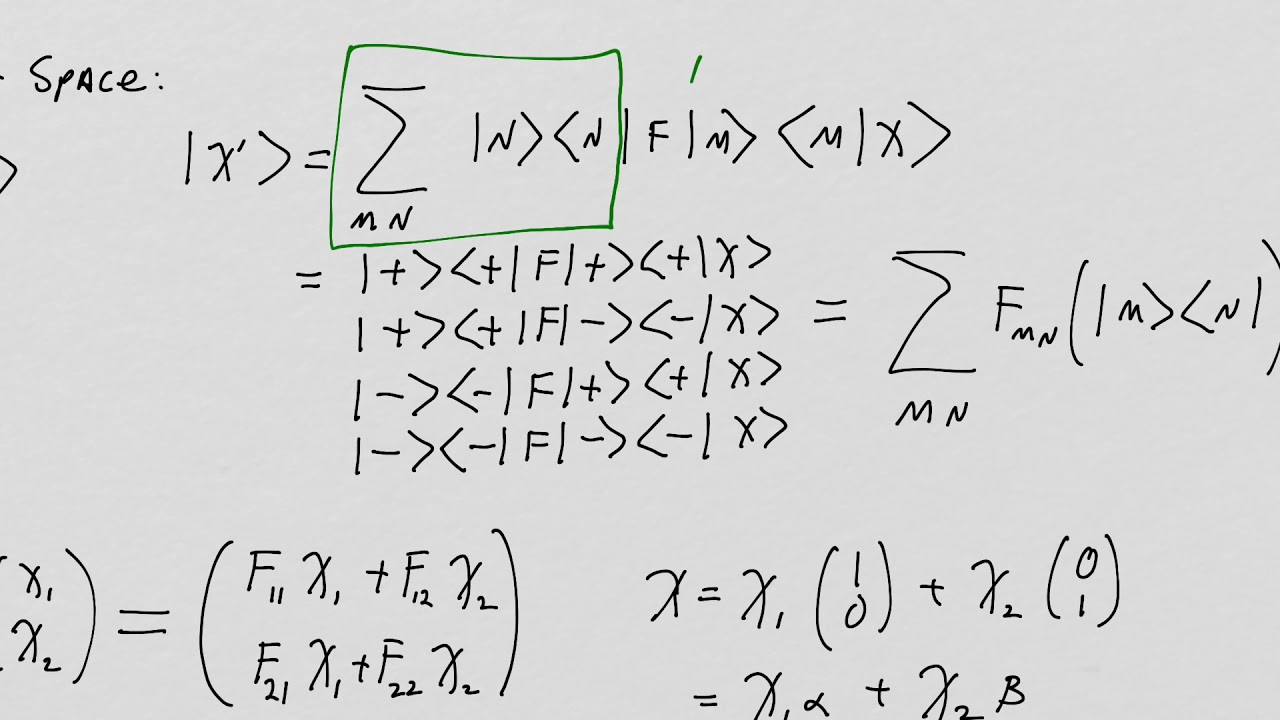 Space:
|χ'> = ∑ |N><N| F |M> <M|X>
MN
= |+><+|F|+><+|X>
|+><+|F|-><-|X> = ∑ F_MN (|M><N|)
|-><-|F|+><+|X>
MN
|-><-|F|-><-|X>
(χ₁ χ₂) = (F₁₁ χ₁ + F₁₂ χ₂
F₂₁ χ₁ + F₂₂ χ₂)
χ = χ₁ (1 0) + χ₂ (0 1)
= χ₁ α + χ₂ β